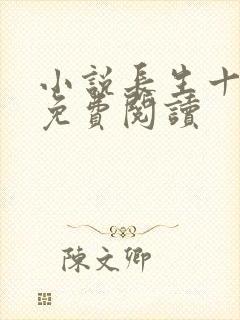 小說長生十
免費閱讀
陳文卿